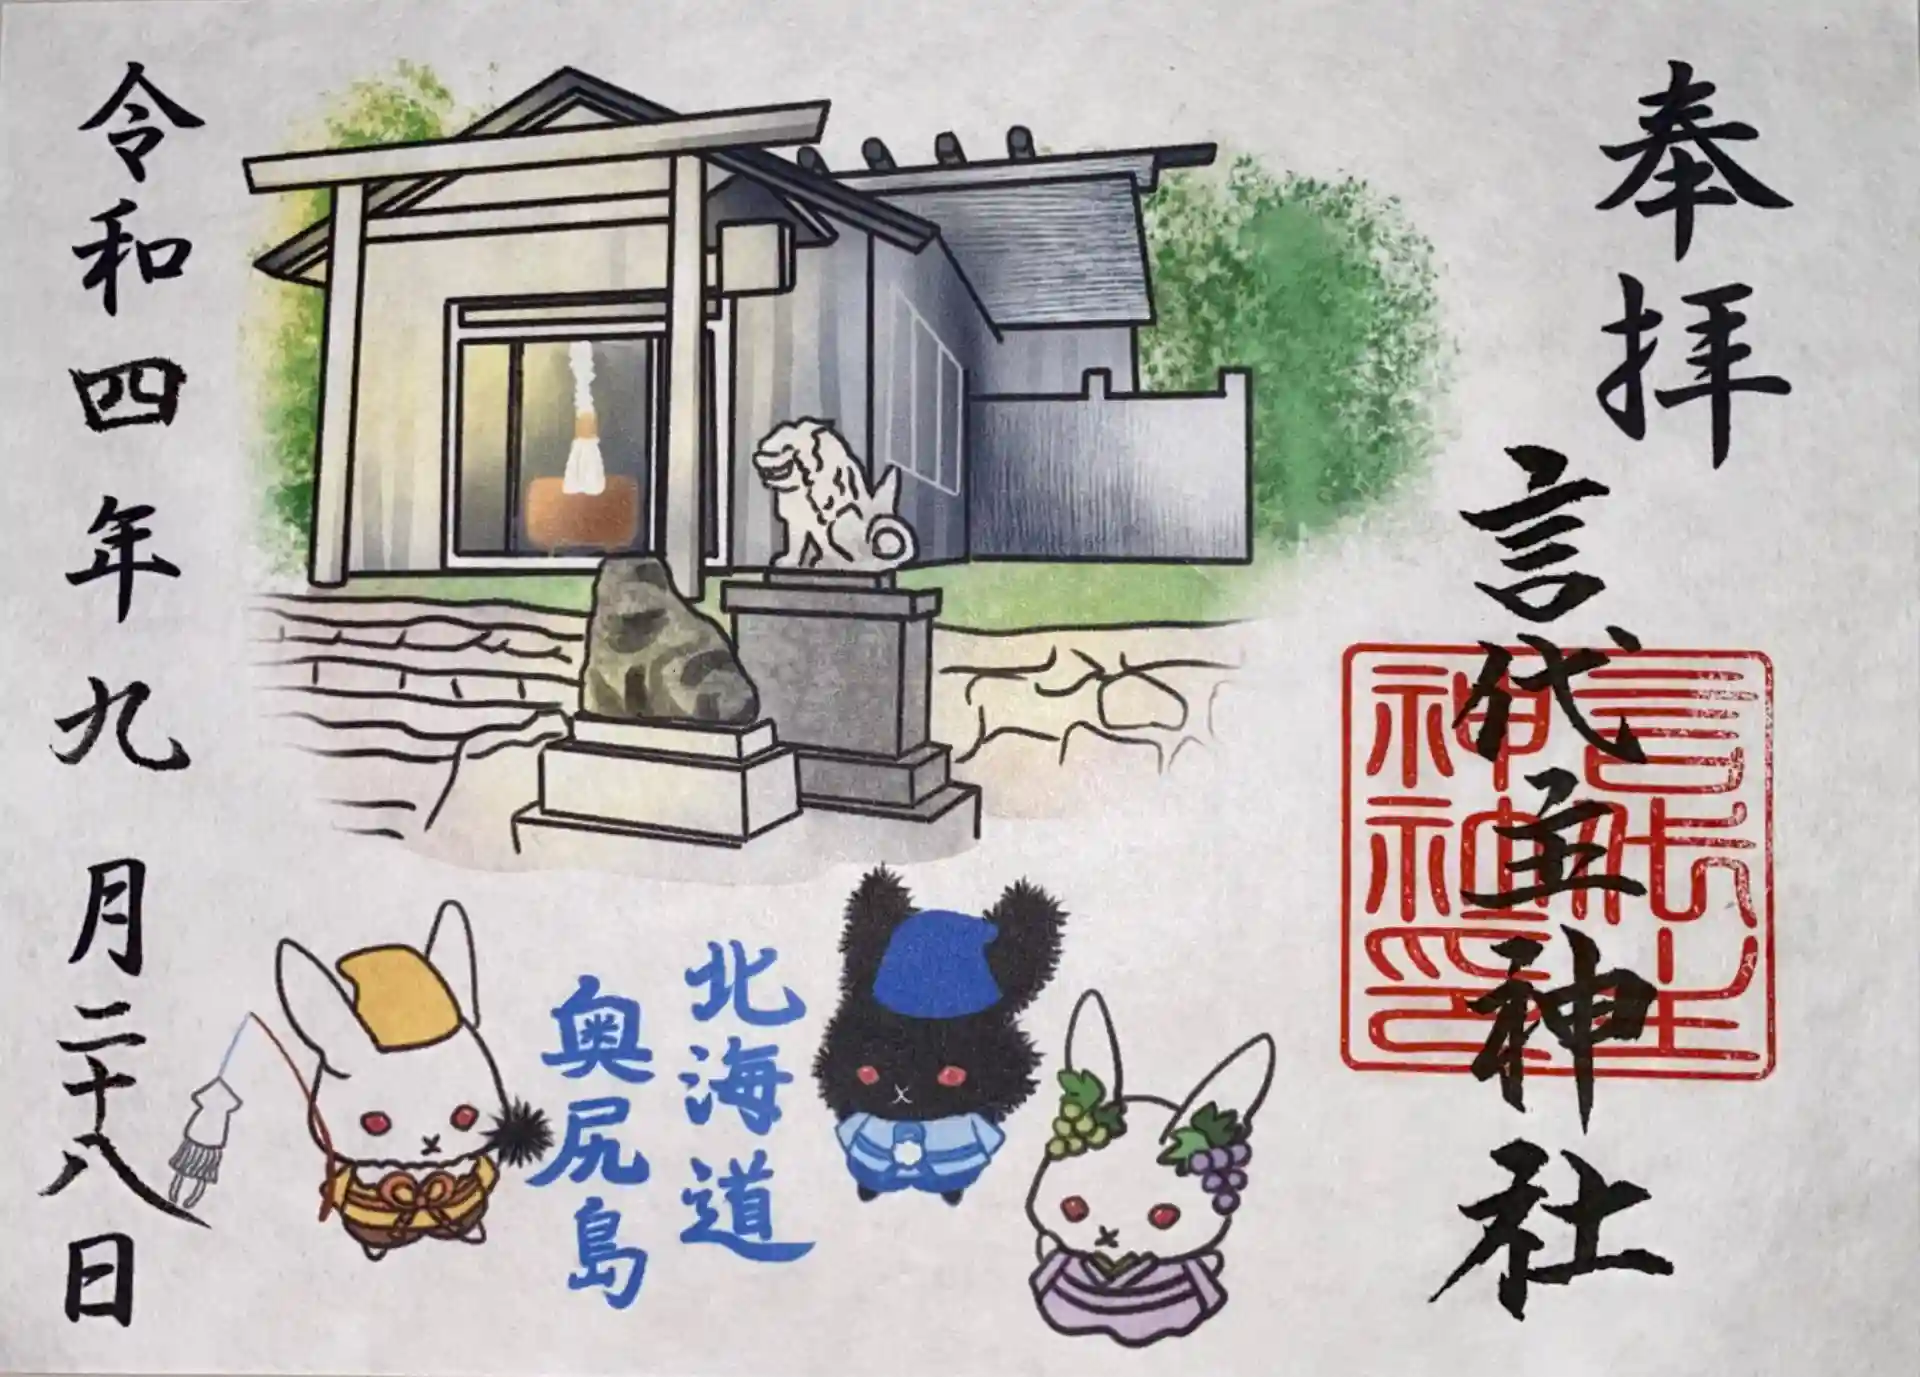 奉拝
言代主神社
言代主
神社印
北海道
奥尻島
令和四年九月二十八日